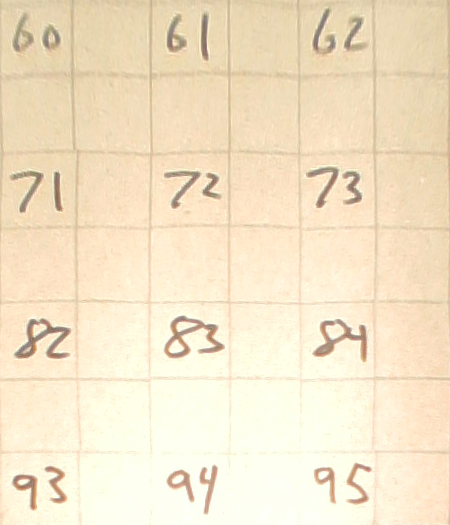 60 61 62
71 72 73
82 83 84
93 94 95